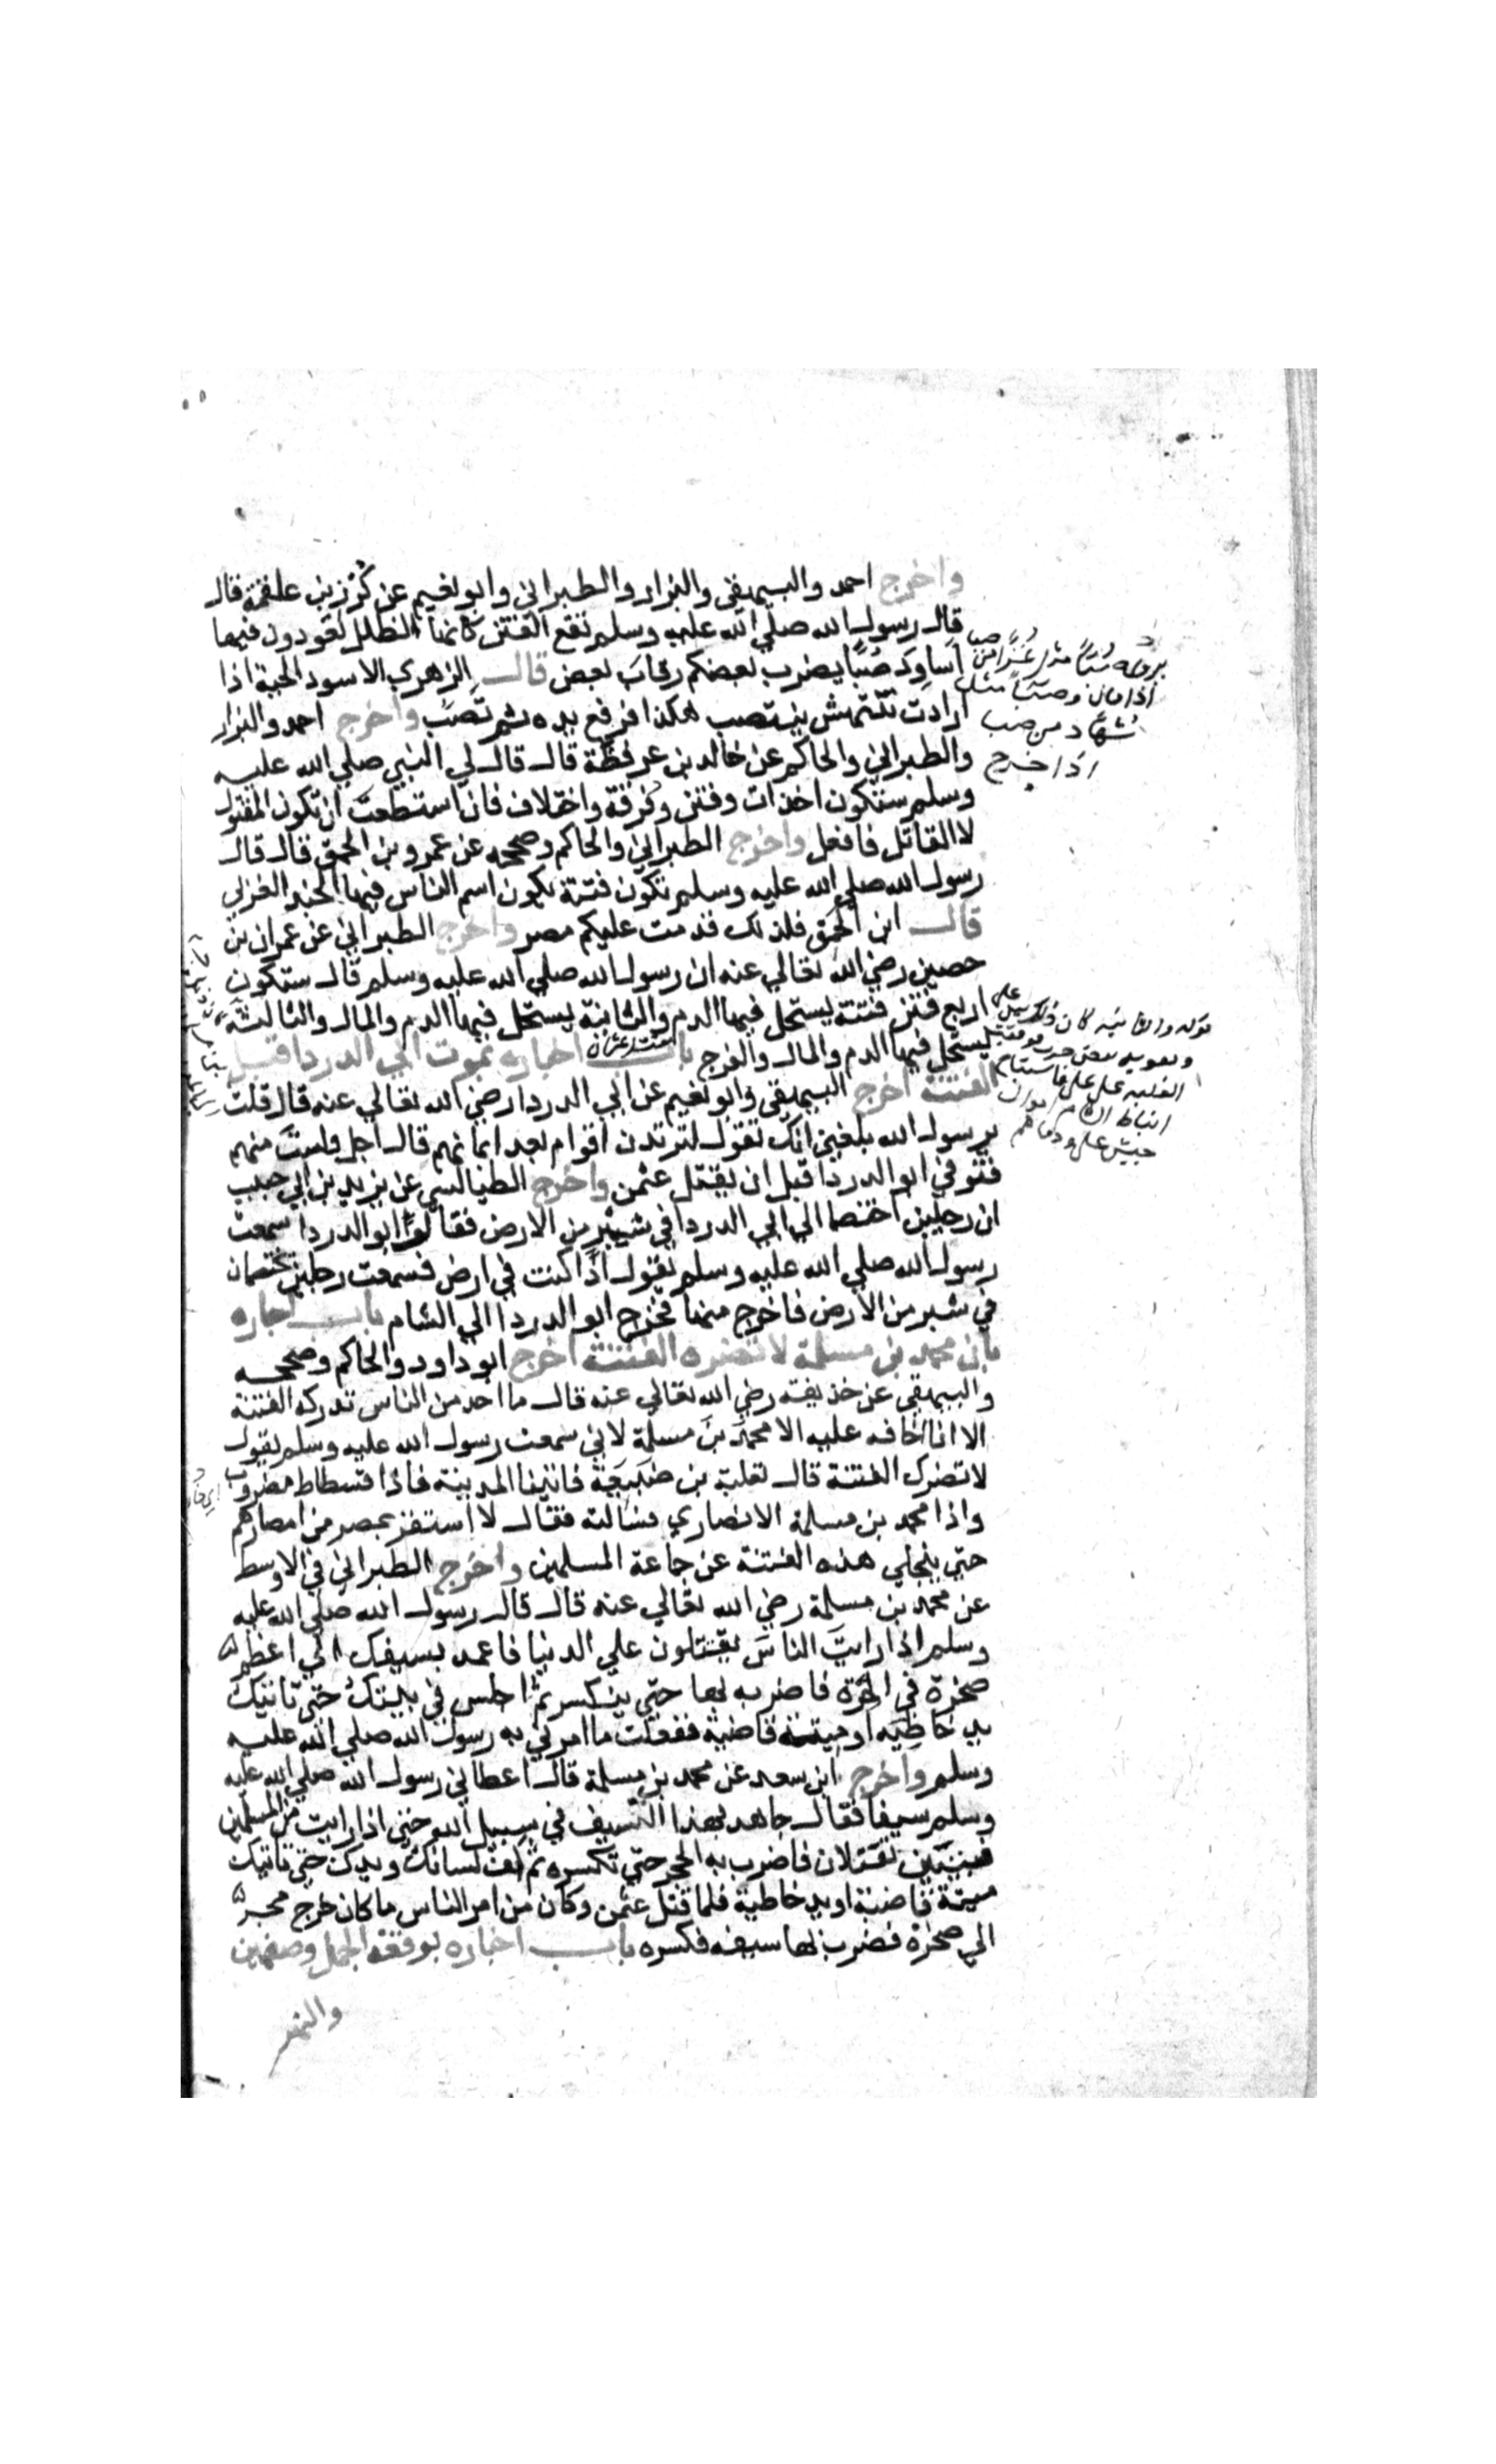 واخرج احمد والبيهقي والبزار والطبراني وابو نعيم عن كُرْز بن علقمة قال
قال رسول الله صلي الله عليه وسلم تقع الفتن كانها الظلل تعودون فيها
اساود صُبًّا يضرب بعضكم رقاب بعض قال الزهري الاسود الحية اذا
ارادت تنتهش تنتصب هكذا فرفع يده ثم تصب واخرج احمد والبزار
والطبراني والحاكم عن خالد بن عرفطة قال قال لي النبي صلي الله عليه
وسلم ستكون احداث وفتن وفرقة واختلاف فان استطعت ان تكون المقتول
لا القاتل فافعل واخرج الطبراني والحاكم وصححه عن عمرو بن الحمق قال قال
رسول الله صلي الله عليه وسلم تكون فتنة يكون اسلم الناس فيها الجند الغربي
قال ابن الحمق فلذلك قدمت عليكم مصر واخرج الطبراني عن عمران بن
حصين رضي الله تعالي عنه ان رسول الله صلي الله عليه وسلم قال ستكون
اربع فتن فتنة يستحل فيها الدم والثانية يستحل فيها الدم والمال والثالثة
يستحل فيها الدم والمال والفرج باب اخباره بموت ابي الدردا قبل
الفتنة اخرج البيهقي وابو نعيم عن ابي الدردا رضي الله تعالي عنه قال قلت
يرسول الله بلغني انك تقول لترتدن اقوام بعد ايمانهم قال اجل ولست منهم
فتوفي ابو الدردا قبل ان يقتل عثمن واخرج الطيالسي عن يزيد بن ابي حبيب
ان رجلين اختصما الي ابي الدردا في شبر من الارض فقال ابو الدردا سمعت
رسول الله صلي الله عليه وسلم يقول اذا كنت في ارض فسمعت رجلين يختصمان
في شبر من الارض فاخرج منها فخرج ابو الدردا الي الشام باب اخباره
بان محمد بن مسلمة لا تضره الفتنة اخرج ابو داود والحاكم وصححه
والبيهقي عن حذيفة رضي الله تعالي عنه قال ما احد من الناس تدركه الفتنة
الا انا اخافه عليه الا محمدَ بنَ مسلمة لاني سمعت رسول الله عليه وسلم يقول
لا تضرك الفتنة قال ثعلبة بن ضُبَيعَة فاتينا المدينة فاذا فسطاط مضروب
واذا محمد بن مسلمة الانصاري فسالته فقال لا استقر بمصر من امصارهم
حتي ينجلي هذه الفتنة عن جماعة المسلمين واخرج الطبراني في الاوسط
عن محمد بن مسلمة رضي الله تعالي عنه قال قال رسول الله صلي الله عليه
وسلم اذا رايت الناس يقتتلون علي الدنيا فاعمد بسيفك الي اعظم
صخرة في الحرة فاضربه بها حتي ينكسر ثم اجلس في بيتك حتي تاتيك
يد خاطيه او ميتة قاضية ففعلت ما امرني به رسول الله صلي الله عليه
وسلم واخرج ابن سعد عن محمد بن مسلمة قال اعطاني رسول الله صلي الله عليه
وسلم سيفا فقال جاهد بهذا السيف في سبيل الله حتي اذا رايت من المسلمين
فيتين تقتتلان فاضرب به الحجر حتي تكسره ثم كف لسانك ويدك حتي تاتيك
ميتة قاضية او يد خاطية فلما قتل عثمن وكان من امر الناس ما كان خرج محمد
الي صخرة فضرب بها سيفه فكسره باب اخباره بوقعة الجمل وصفين
والنهر
اذا خرج